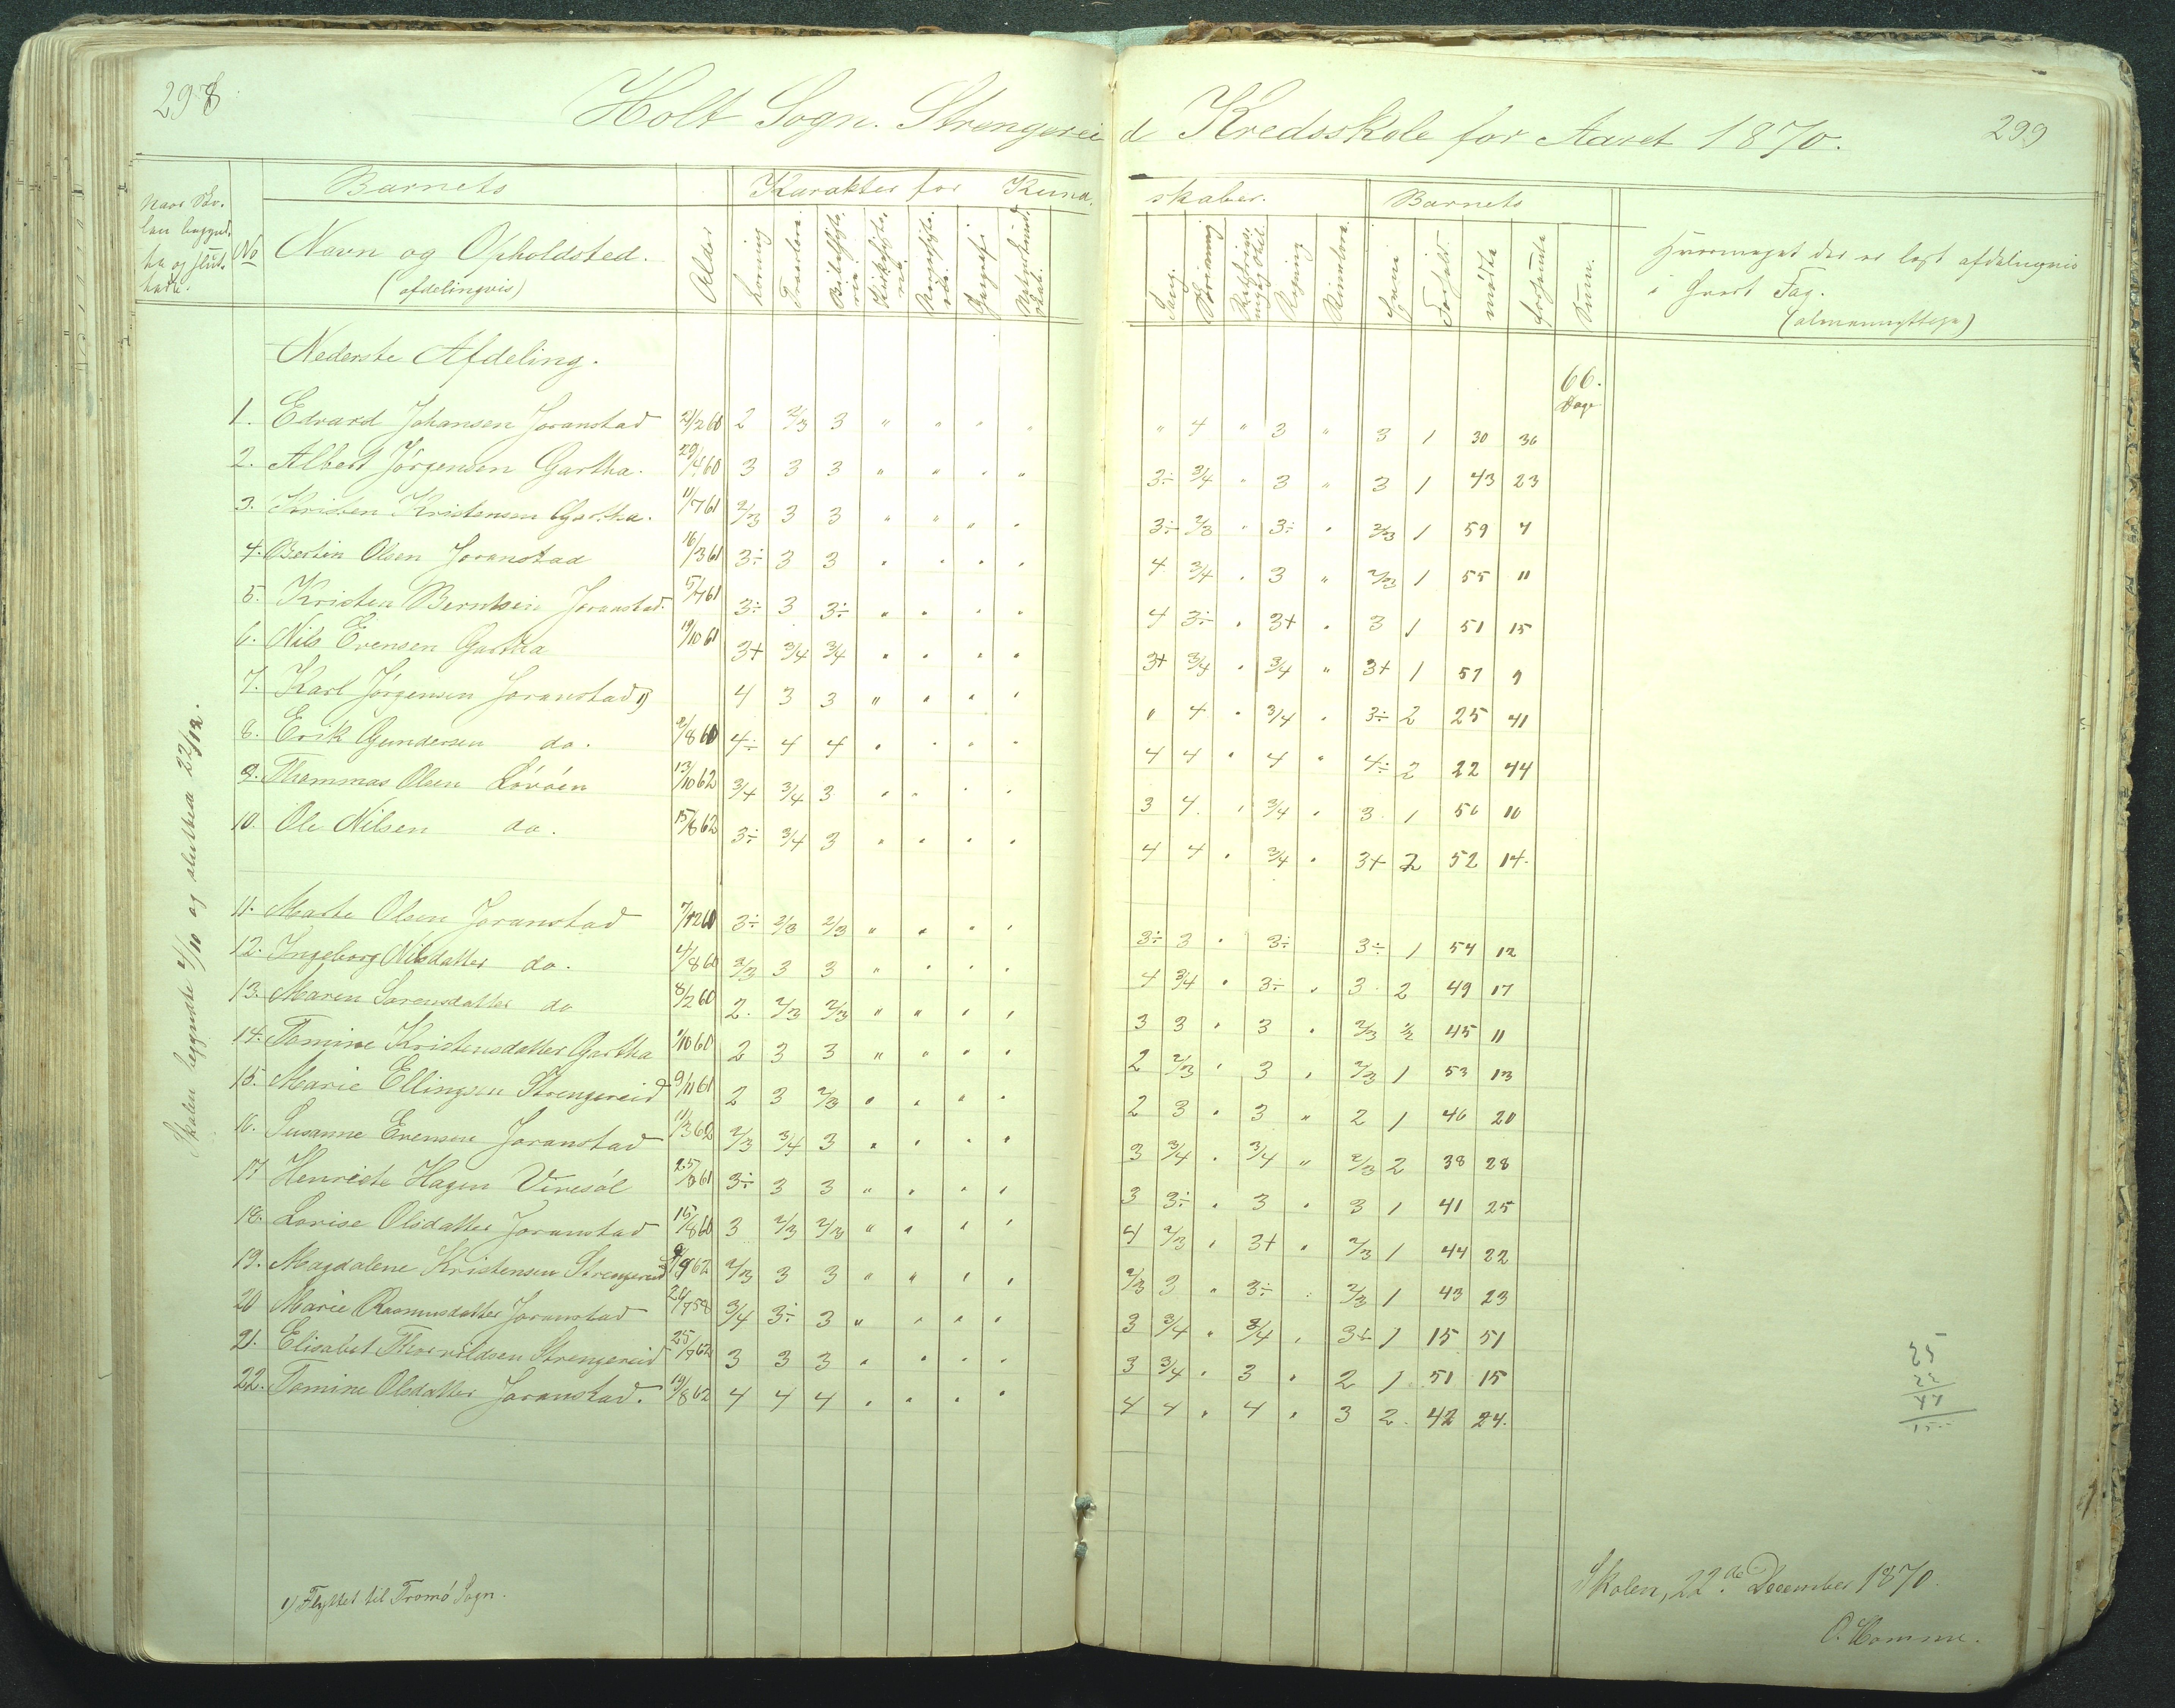 298
Holt Sogn. Strengereid Kredsskole for Aaret 1870.
299
Naar Sko-
len begynd-
te og slut-
tede.
No
Barnets
Navn og Opholdsted.
(afdelingvis)
Alder
Karakter for Kund-
skaber.
Læsning
Troeslære.
Bibelhisto-
rie.
Kirkehisto-
rie.
Norgeshisto-
rie.
Geografi
Naturkund-
skab.
Sang.
Skrivning
Regning
Barnets
Evne
Forhold.
mødte
forsømte
Sum.
Hvormeget der er læst afdelingvis
i hvert Fag.
Nederste Afdeling.
66.
Dage
1. Edvard Johansen Joranstad 21/2 60 2 2/3 3 " " " " " 4 " 3 " 3 1 30 36
2. Albert Jørgensen Gartha. 29/4 60 3 3 3 " " " " 3÷ 3/4 " 3 " 3 1 43 23
3. Kristen Kristensen Gartha. 11/7 61 2/3 3 3 " " " " 3÷ 2/3 " 3÷ " 2/3 1 59 7
4. Bertin Olsen Joranstad 16/3 61 3÷ 3 3 " " " " 4 3/4 " 3 " 2/3 1 55 11
5. Kristen Berntsen Joranstad. 5/7 61 3÷ 3 3÷ " " " " 4 3÷ " 3+ " 3 1 51 15
6. Nils Evensen Gartha 19/10 61 3+ 3/4 3/4 " " " " 3+ 3/4 " 3/4 " 3+ 1 57 9
7. Karl Jørgensen Joranstad 1) 4 3 3 " " " " " 4 " 3/4 " 3÷ 2 25 41
8. Erik Gundersen do. 2/8 60 4÷ 4 4 " " " " 4 4 " 4 " 4÷ 2 22 44
9. Thommas Olsen Løvøen 13/10 62 3/4 3/4 3 " " " " 3 4 " 3/4 " 3 1 56 10
10. Ole Nilsen do. 15/8 62 3÷ 3/4 3 " " " " 4 4 " 3/4 " 3+ 2 52 14.
11. Marte Olsen Joranstad 7/12 60 3÷ 2/3 2/3 " " " " 3÷ 3 " 3÷ 3÷ 1 54 12
12. Ingeborg Nilsdatter do. 4/8 60 2/3 3 3 " " " " 4 3/4 " 3÷ " 3 2 49 17
13. Maren Sørensdatter do 8/2 60 2. 2/3 2/3 " " " " 3 3 " 3 " 2/3 1/2 45 11
14. Tomine Kristensdatter Gartha 1/10 60 2 3 3 " " " " 2 2/3 " 3 " 2/3 1 53 13
15. Marie Ellingsen Strengereid 9/11 61 2 3 2/3 " " " " 2 3 " 3 " 2 1 46 20
16. Susanne Evensen Joranstad 11/3 62 2/3 3/4 3 " " " " 3 3/4 " 3/4 " 2/3 2 38 28
17 Henriete Hagen Viresøl 25/3 61 3÷ 3 3 " " " " 3 3÷ " 3 " 3 1 41 25
18. Lovise Olsdatter Joranstad 15/8 60 3 2/3 2/3 " " " " 4 2/3 " 3+ " 2/3 1 44 22
19. Magdalene Kristensen Strengereid 9 62 2/3 3 3 " " " " 2/3 3 " 3÷ " 2/3 1 43 23
20 Marie Rasmusdatter Joranstad 26/7 58 3/4 3÷ 3 " " " " 3 3/4 " 3/4 " 3+ 1 15 51
21. Elisabet Thorvaldsen Strengereid 25/7 62 3 3 3 " " " " 3 3/4 " 3 " 2 1 51 15
22. Tomine Olsdatter Joranstad. 19/8 62 4 4 4 " " " " 4 4 " 4 " 3 2. 42 24.
Skolen begyndte 4/10 og sluttede 22/12.
25
22
47
1) Flyttet til Tromø Sogn.
Skolen, 22de December 1870.
O. Homme.